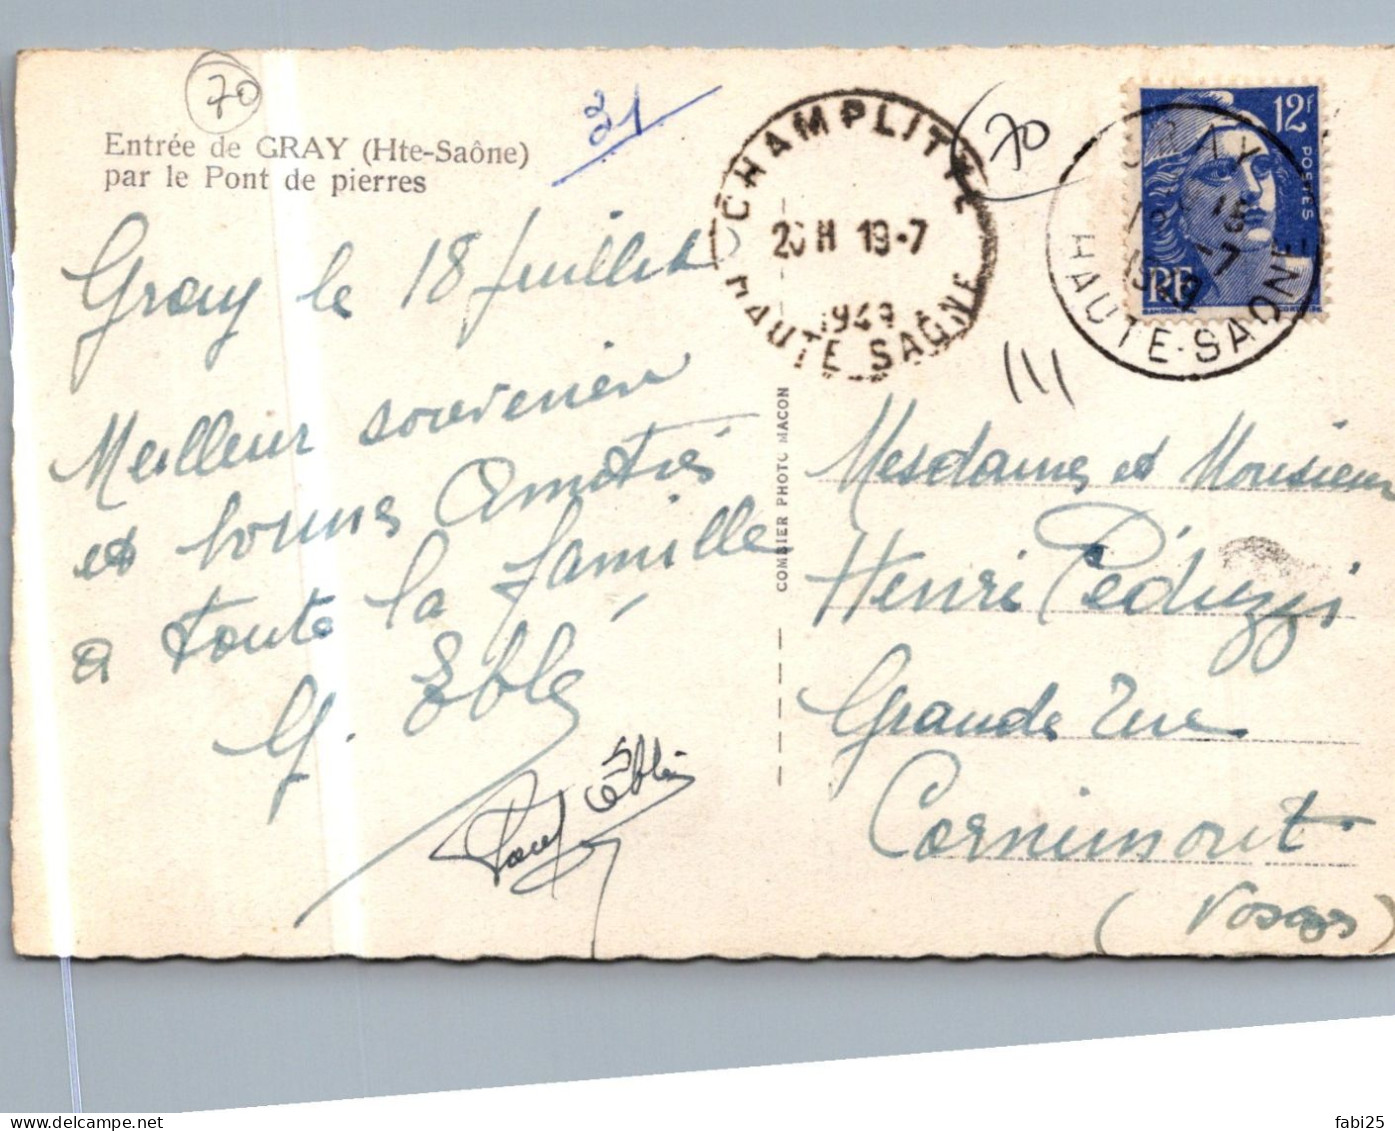 70
Entrée de GRAY (Hte-Saône)
par le Pont de pierres
21
Gray le 18 Juillet
Meilleur souvenir
et bonnes Amitiés
a toute la famille
G. Eblé
CHAMPLITTE
20H 19-7
1949
HAUTE SAONE
70
12F
POSTES
RF
GRAY
18
-7
HAUTE-SAONE
COMBIER PHOTO MACON
Mesdames et Monsieur
Henri Péduzzi
Grande Rue
Cornimont
(Vosges)
fabi25